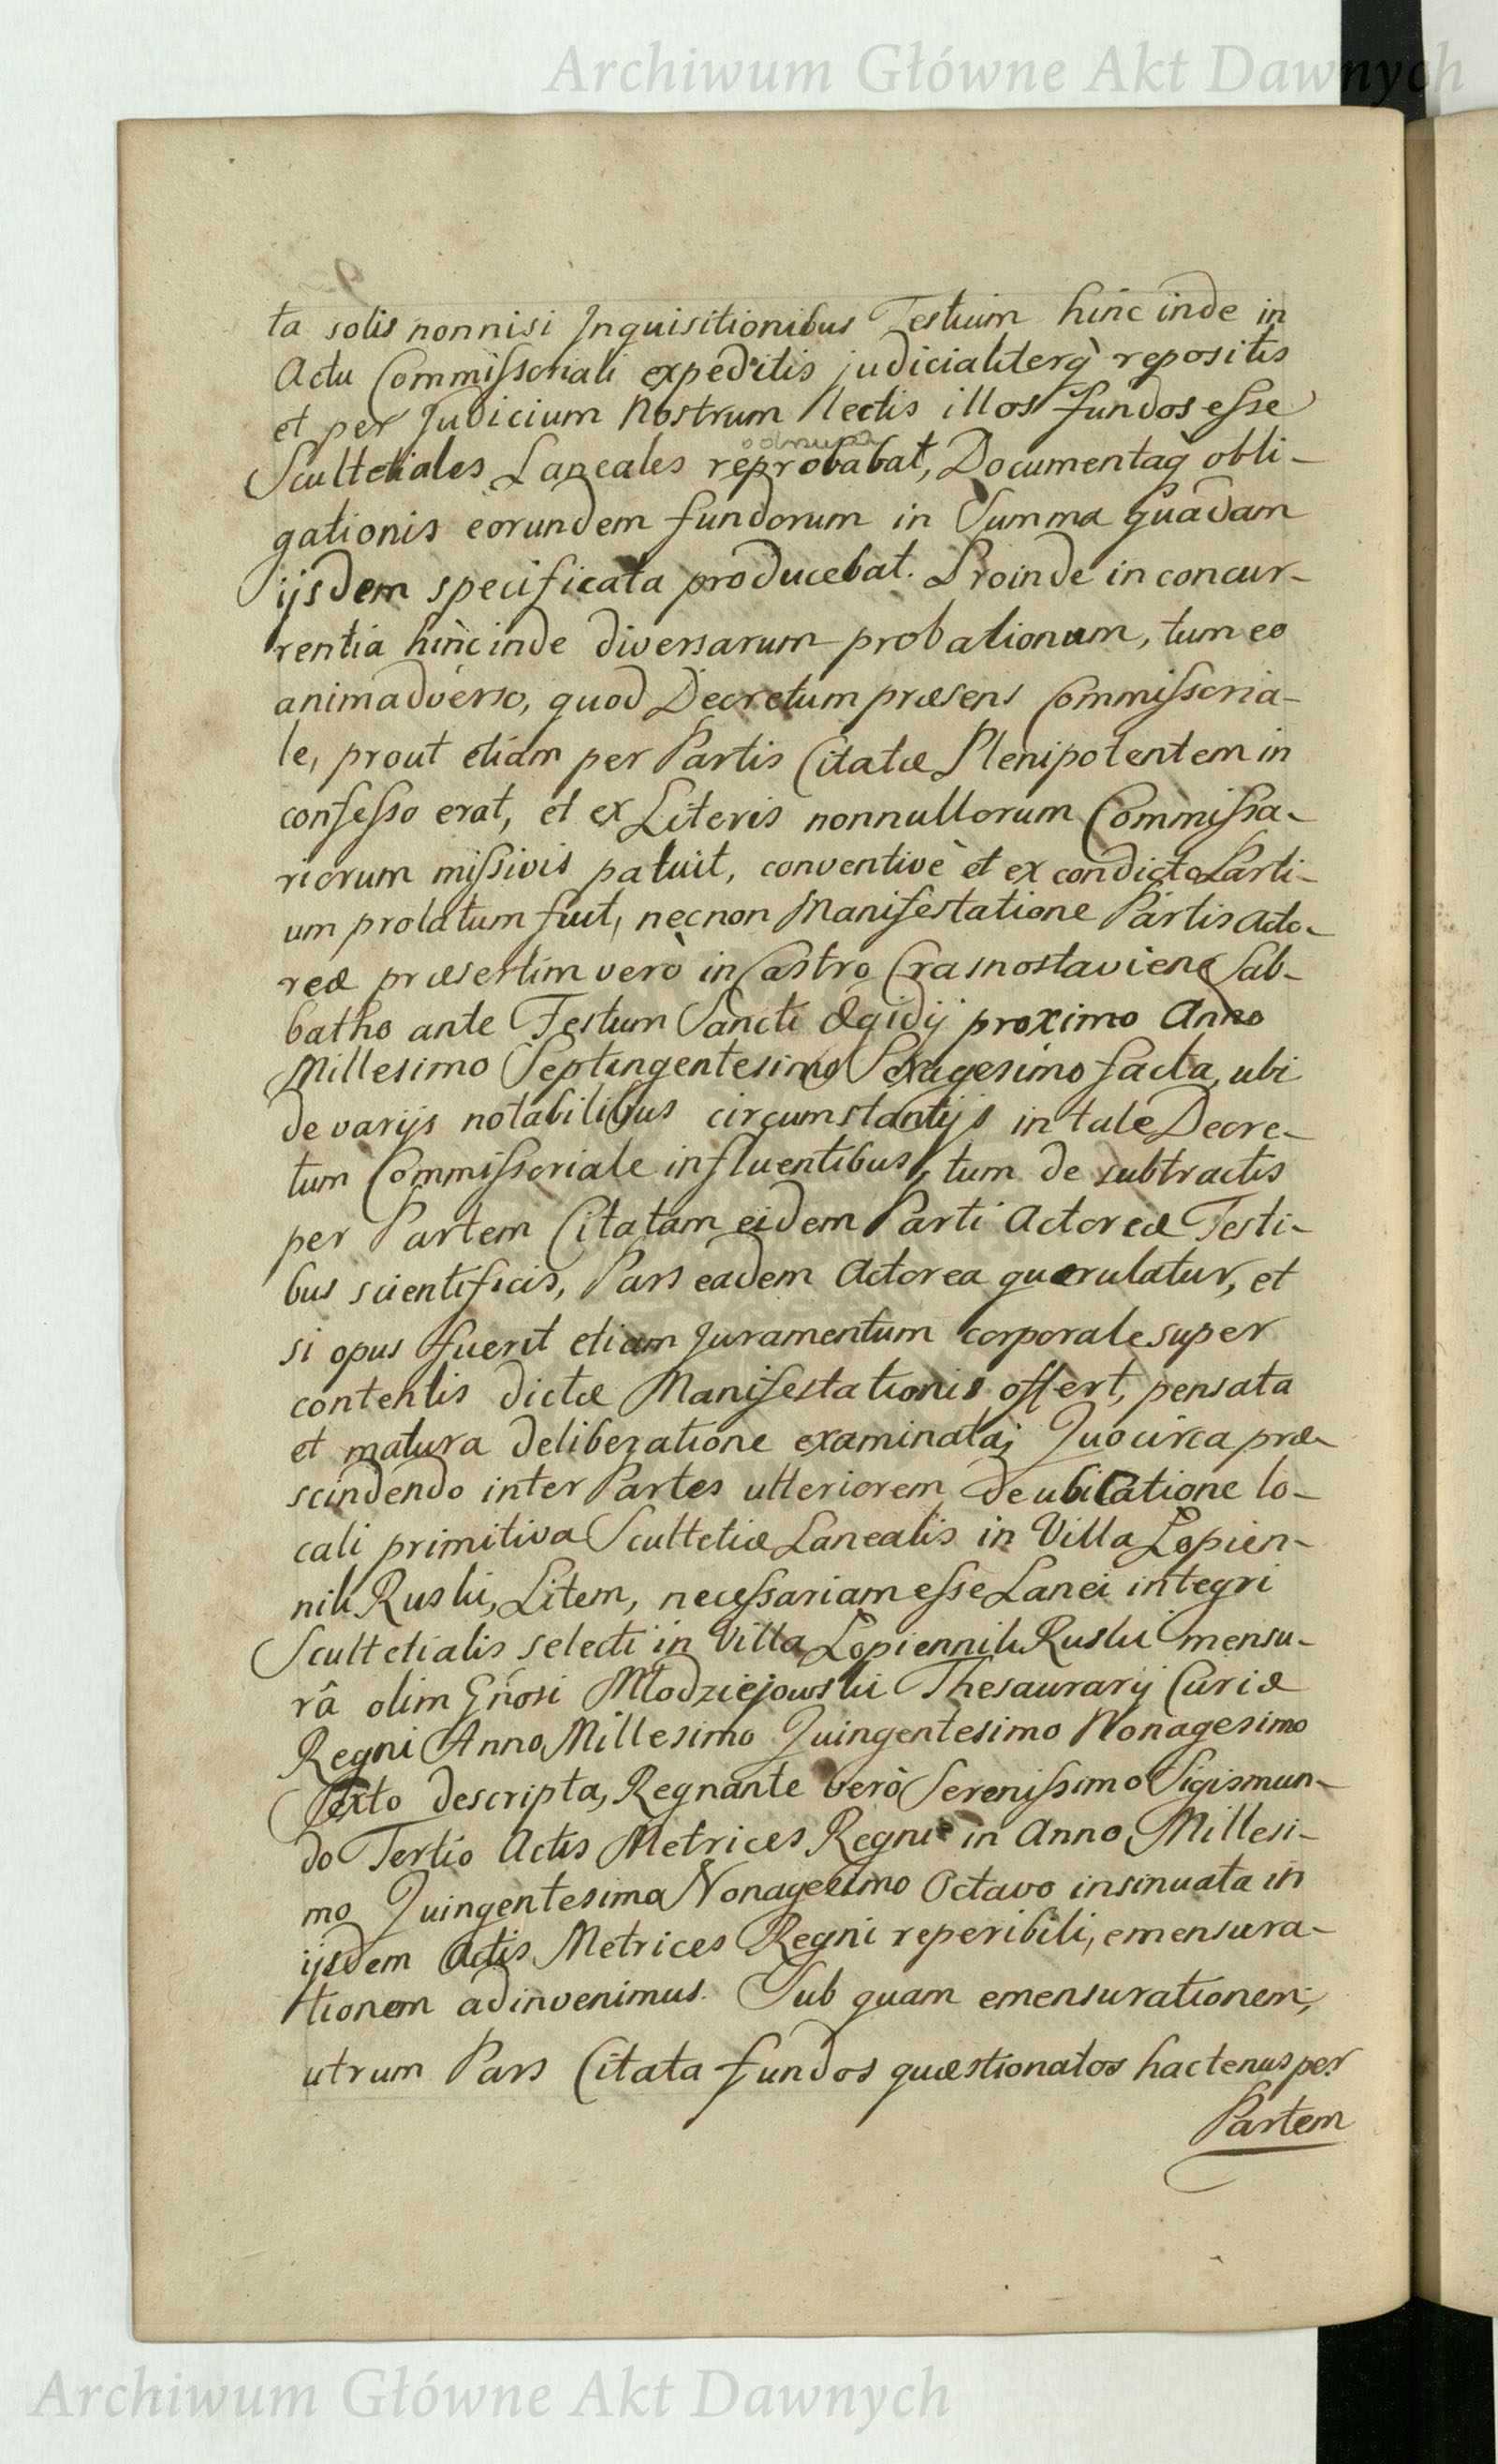 Archiwum Główne Akt Dawnych
ta solis nonnisi Inquisitionibus Testium hinc inde in
Actu Commissoriali expeditis judicialiterq̀ repositis
et per Judicium Nostrum lectis illos fundos esse
odmupa
Scultetiales Laneales reprobabat, Documentaq̀ obli-
gationis eorundem fundorum in Summa quadam
ijsdem specificata producebat. Proinde in concur-
rentia hinc inde diversarum probationum, tum eo
animadverso, quod Decretum præsens Commissoria-
le, prout etiam per Partis Citatæ Plenipotentem in
confesso erat, et ex Literis nonnullorum Commissa-
riorum missivis patuit, conventivè et ex condicto Parti-
um prolatum fuit, necnon Manifestatione Partis Acto-
reæ præsertim verò in Castro Crasnostaviensi Sab-
batho ante Festum Sancti Ægidij proximo Anno
Millesimo Septingentesimo Sexagesimo facta, ubi
de varijs notabilibus circumstantijs in tale Decre-
tum Commissoriale influentibus, tum de subtractis
per Partem Citatam eidem Parti Actoreæ Testi-
bus scientificis, Pars eadem Actorea querulatur, et
si opus fuerit etiam Juramentum corporale super
contentis dictæ Manifestationis offert, pensata
et matura deliberatione examinata; Quocirca præ-
scindendo inter Partes ulteriorem de ubicatione lo-
cali primitiva Scultetiæ Lanealis in Villa Łopien-
nik Ruski, Litem, necessariam esse Lanei integri
Scultetialis selecti in Villa Łopiennik Ruski mensu-
râ olim Gñosi Młodziejowski Thesaurarij Curiæ
Regni Anno Millesimo Quingentesimo Nonagesimo
Sexto descripta, Regnante verò Serenissimo Sigismun-
do Tertio Actis Metrices Regni in Anno Millesi-
mo Quingentesimo Nonagesimo Octavo insinuata in
ijsdem Actis Metrices Regni reperibili, emensura-
tionem adinvenimus. Sub quam emensurationem,
utrum Pars Citata fundos quæstionatos hactenus per
Partem
Archiwum Główne Akt Dawnych